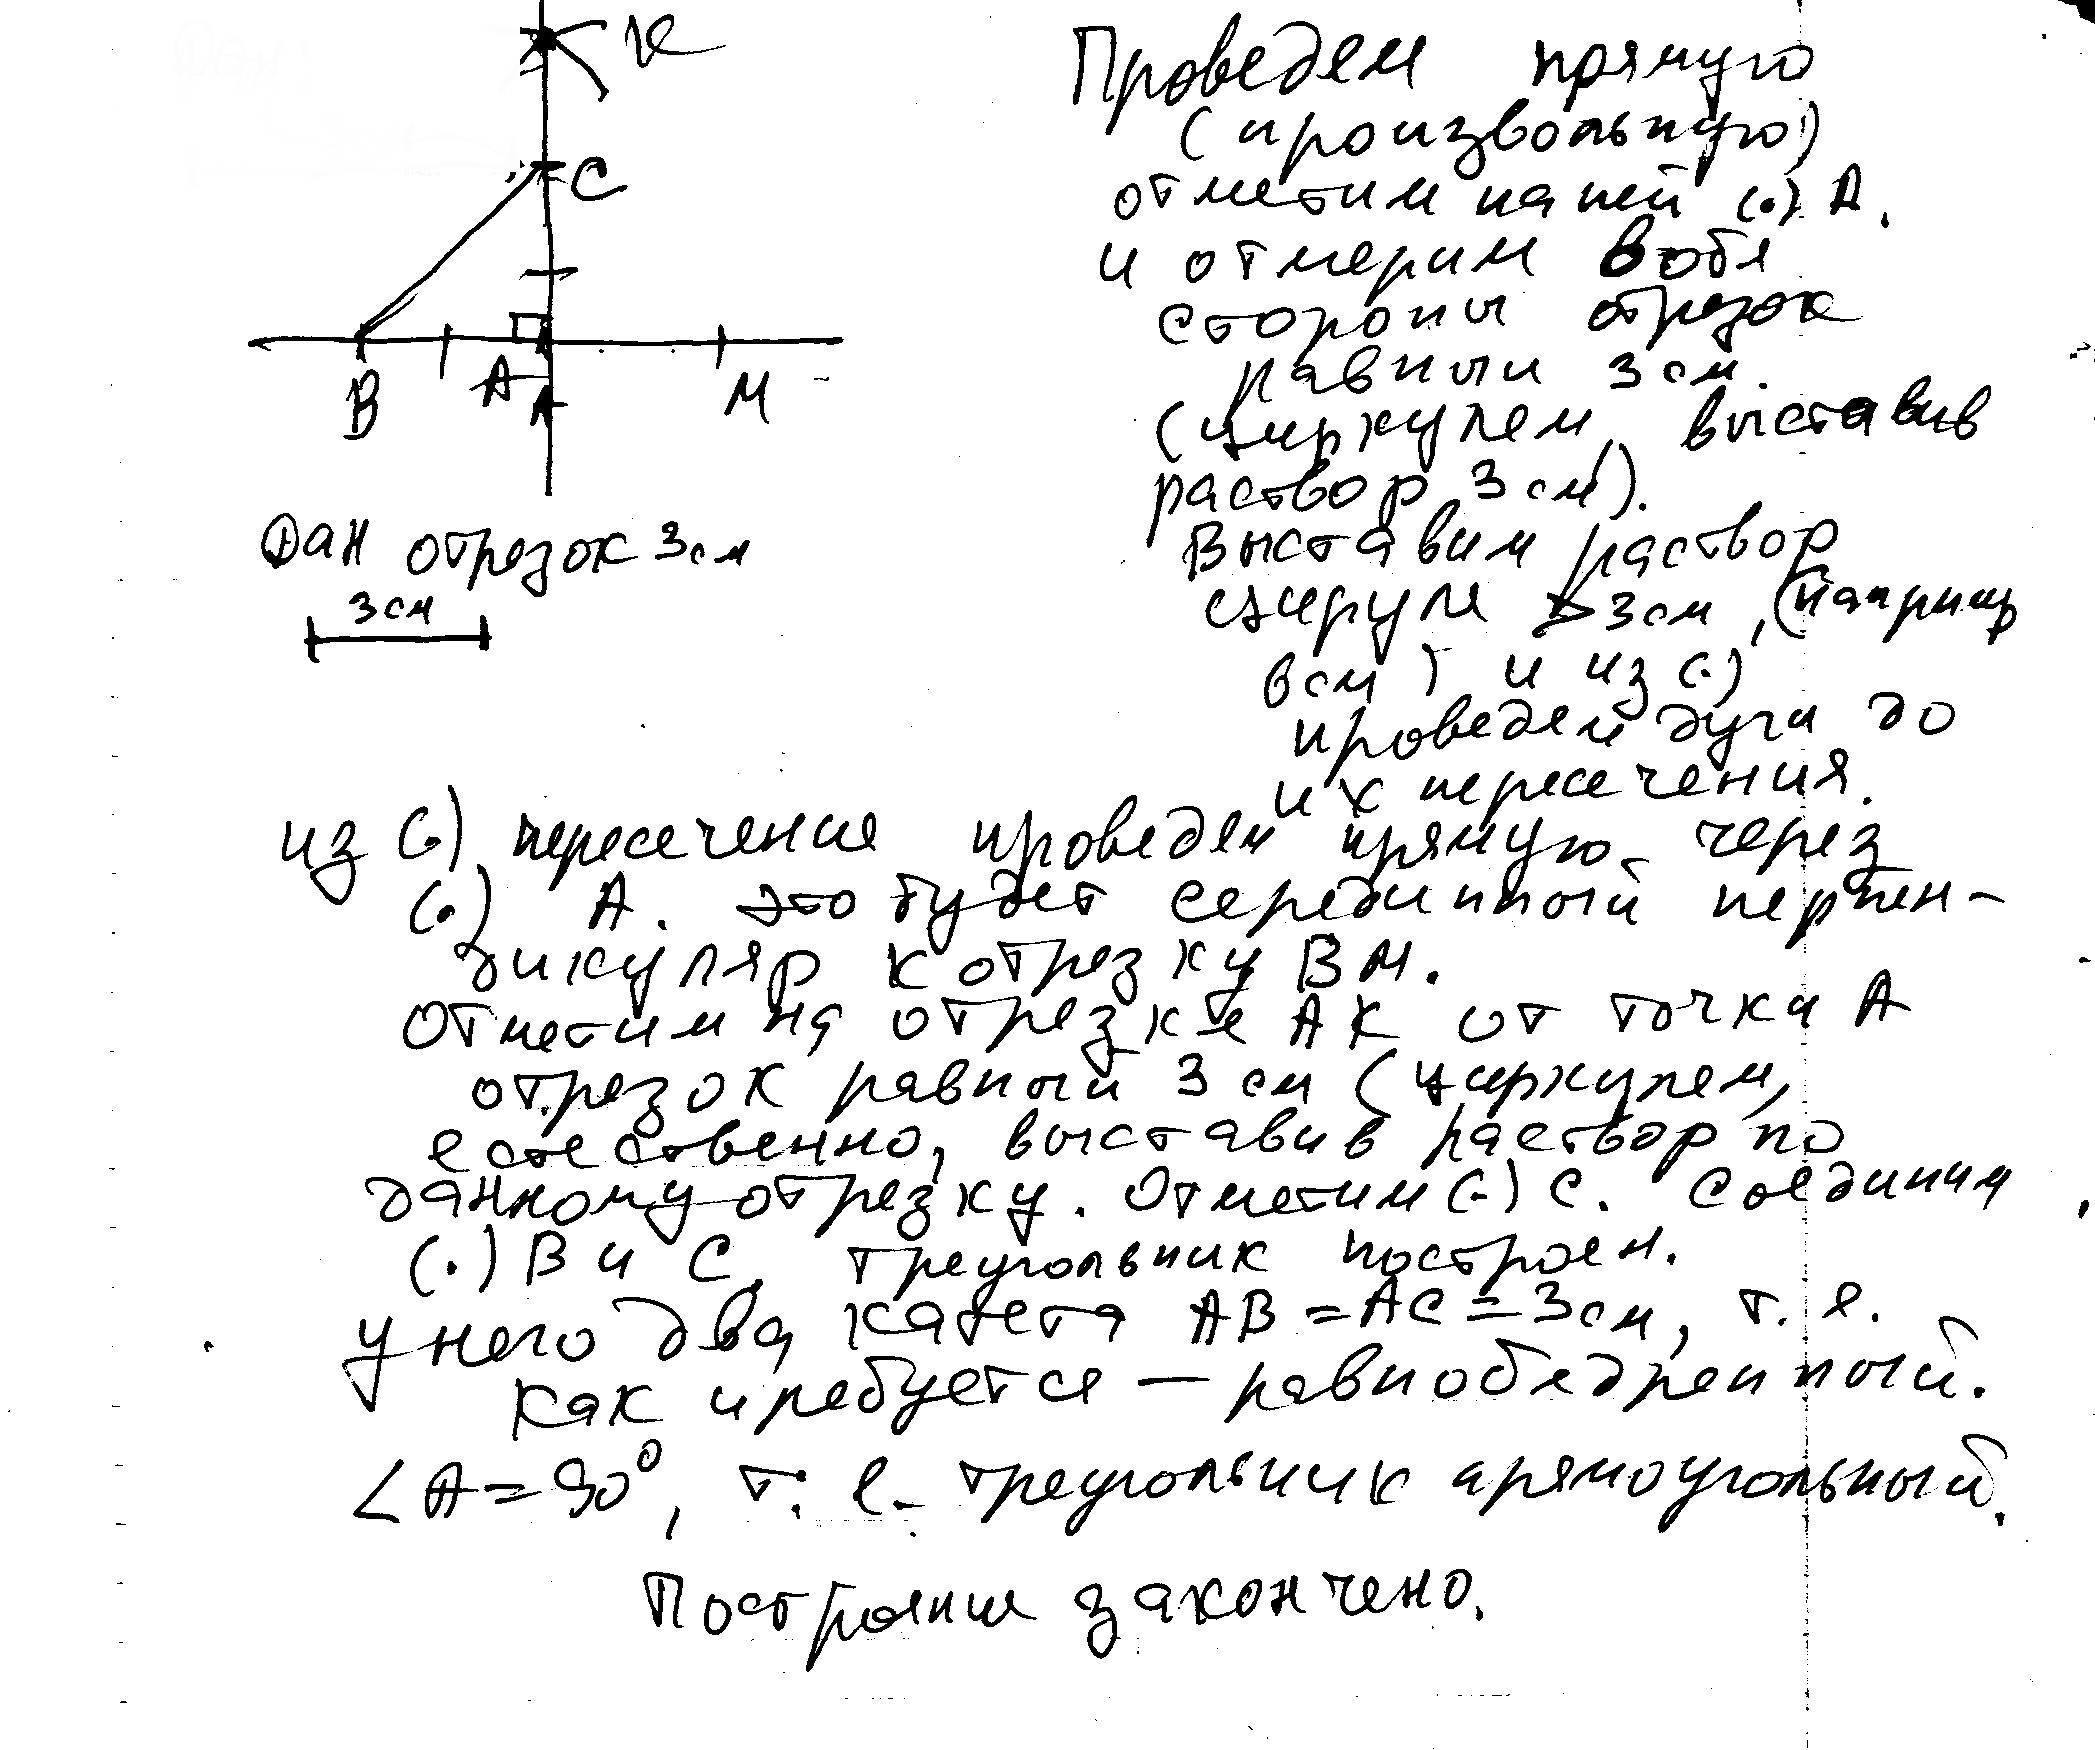 К
С
В
А
М
Дан отрезок 3см
3см
Проведем прямую
(произвольную)
отметим на ней (.) А.
и отмерим в обе
стороны отрезок
равный 3см.
(циркулем, выставив
раствор 3см).
Выставим раствор
циркуля >3см, (наприм
6см) и из (.)
проведем дуги до
их пересечения.
из (.) пересечения проведем прямую через
(.) А. это будет серединный перпен-
дикуляр к отрезку ВМ.
Отметим на отрезке АК от точки А
отрезок равный 3см (циркулем,
естественно, выставив раствор по
данному отрезку. Отметим (.) С. Соединим
(.) В и С, треугольник построен.
у него два катета АВ=АС=3см, т.е.
как и требуется — равнобедренный.
∠А=90°, т.е. треугольник прямоугольный.
Построение закончено.